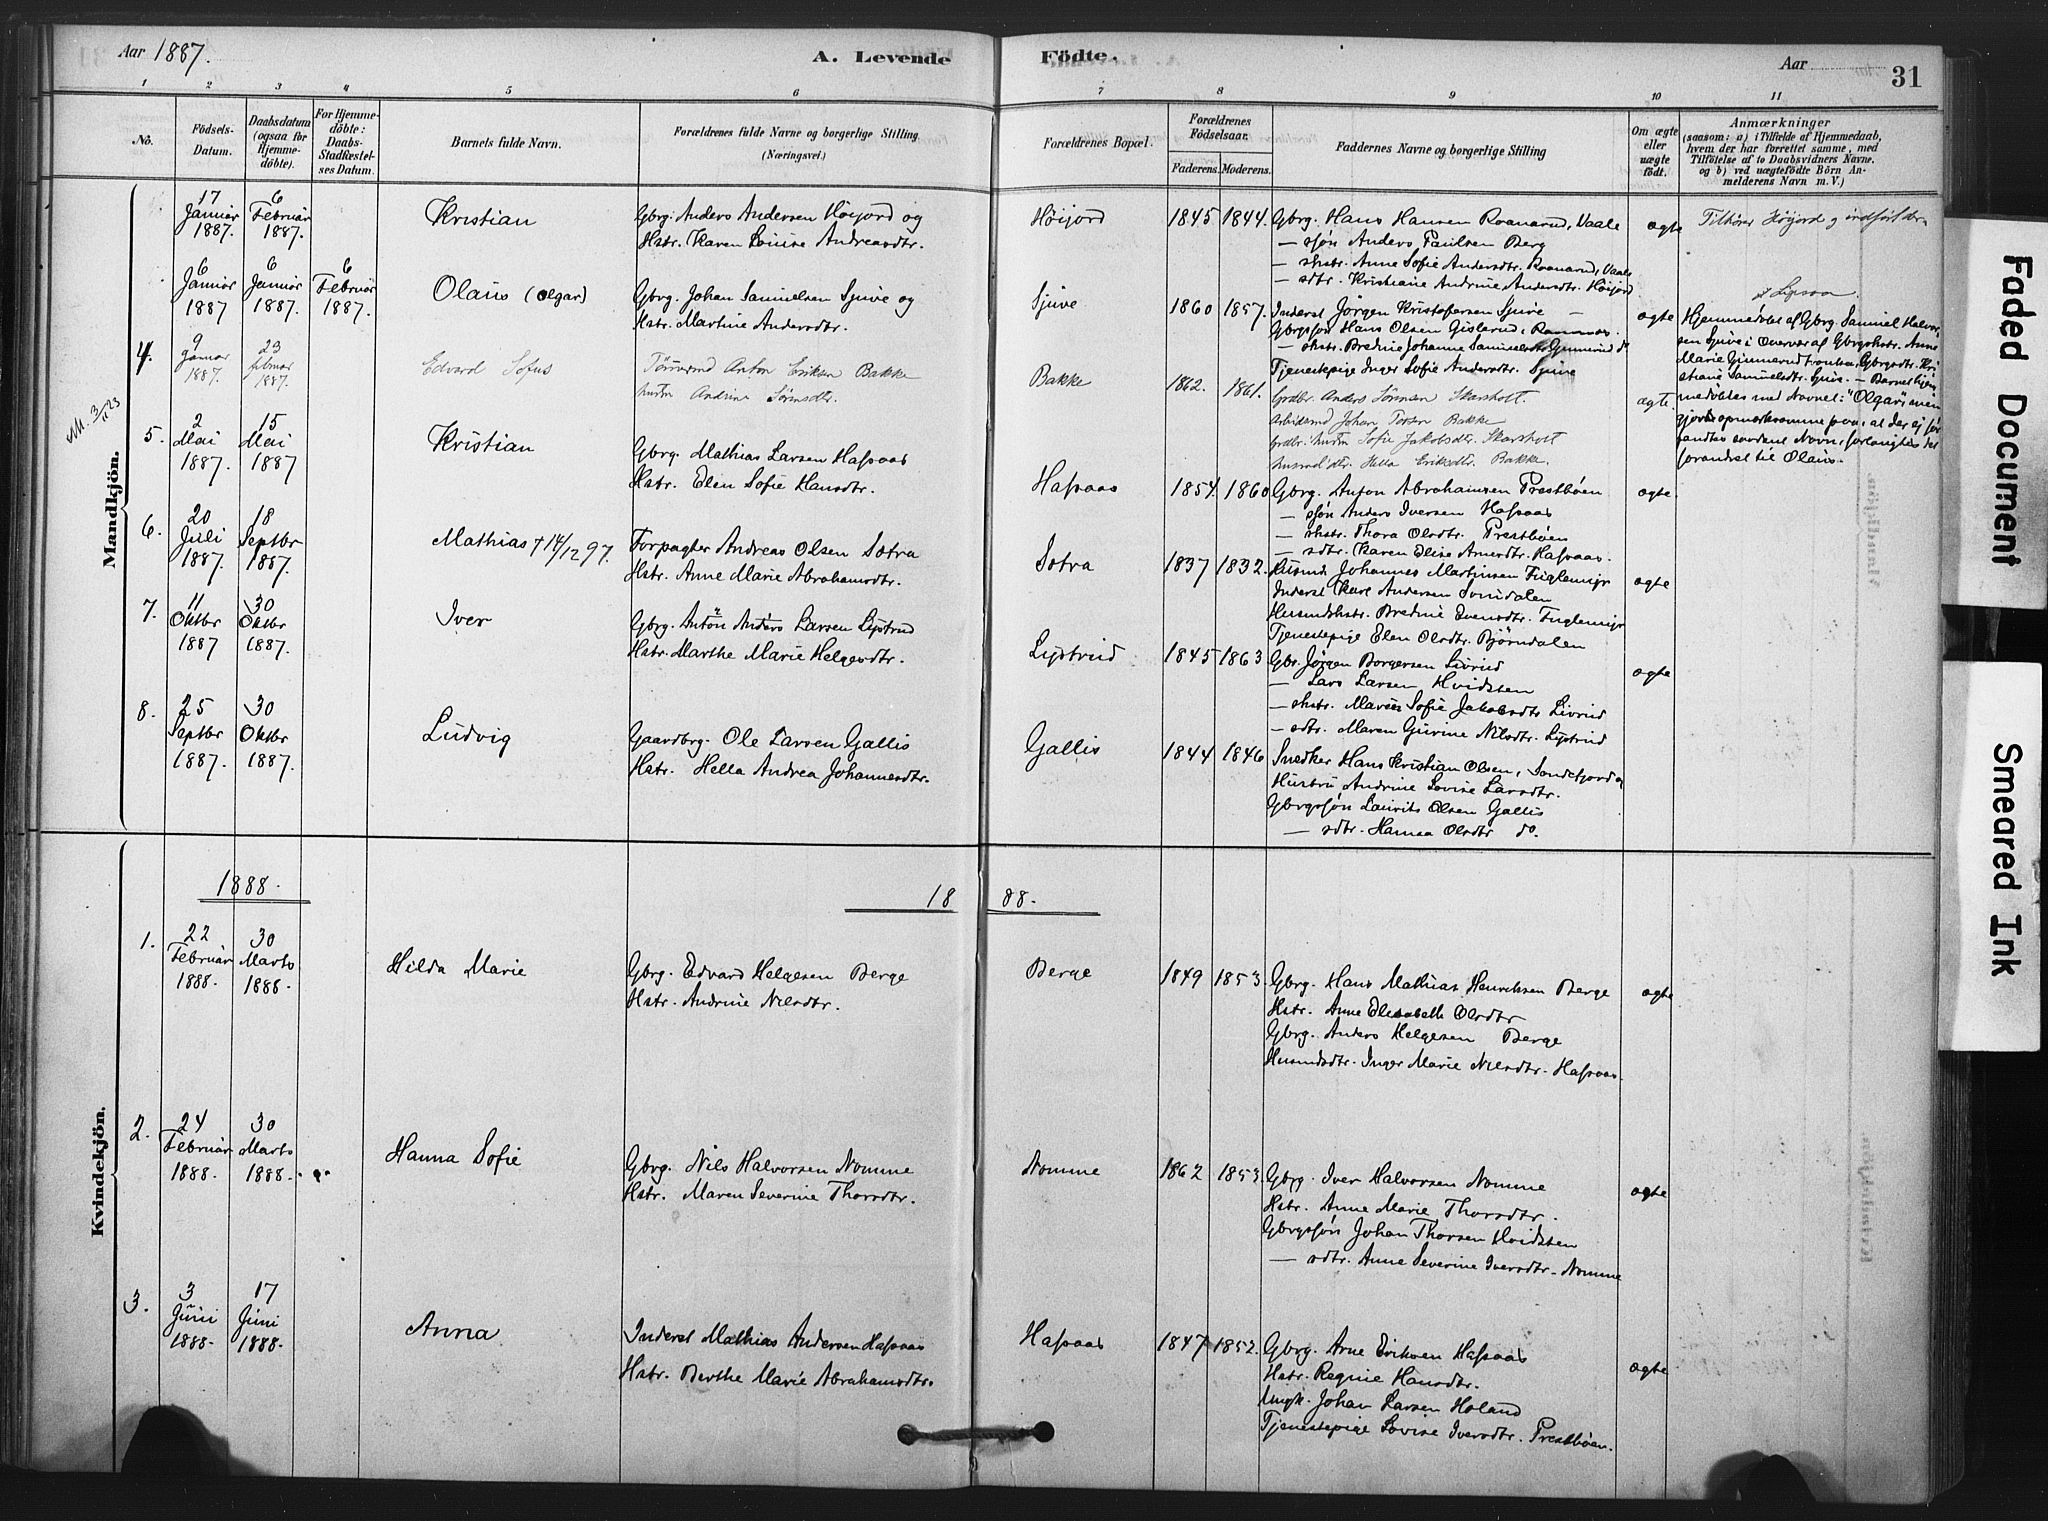 Aar 1887. A. Levende Födte. Aar 31
1 2 3 4 5 6 7 8 9 10 11
No. Födsels-Datum. Daabsdatum (ogsaa for Hjemmedöbte). For Hjemmedöbte: Daabs-Stadfæstelses Datum. Barnets fulde Navn. Forældrenes fulde Navne og borgerlige Stilling. (Næringsvei.) Forældrenes Bopæl. Forældrenes Födselsaar. Faderens. Moderens. Faddernes Navne og borgerlige Stilling Om ægte eller uægte födt. Anmærkninger (saasom: a) i Tilfælde af Hjemmedaab, hvem der har forrettet samme, med Tilföielse af to Daabsvidners Navne, og b) ved uægtefödte Börn Anmelderens Navn m. V.)
Mandkjön.
17 Januar 1887. 6 Februar 1887. Kristian
Gbrg. Anders Andersen Høijord og
Hstr. Karen Louise Andreasdtr.
Høijord 1845 1844.
Gbrg. Hans Hansen Roanarud, Vaale
— sjøn Anders Paulsen Berg
— shstr. Anne Sofie Andersdtr. Roanarud, Vaale
— sdtr. Kristiane Andrine Andersdtr. Høijord
ægte
Tilhører Høijord og indført der
6 Januar 1887 6 Januar 1887. 6 Februar 1887. Olaus (Olgar)
Gbrg. Johan Samuelsen Sjuve og
Hstr. Martine Andersdtr.
Sjuve 1860 1857.
Inderst Jørgen Kristofersen Sjuve
Gbrgsjøn Hans Olsen Gislerud, Ramnæs
— shstr. Bredine Johanne Samuelsdtr Gunnerud do
Tjenestepige Inger Sofie Andersdtr. Sjuve
ægte
Hjemmedøbt af Gbrg. Samuel Halvorsen Sjuve i Overvær af Gbrgshstr. Anne
Marie Gunnerud, Gbrgsdtr. Kristiane Samuelsdtr. Sjuve. — Barnet hjemmedøbtes med Navnet: "Olgar" men
gjordes opmærksomme paa, at der ej fandtes saadant Navn, forlangtes det
forandret til Olaus.
4. 9 Januar 1887. 23 februar 1887. Edvard Sofus
Tømmermd Anton Eriksen Bakke
hustru Andrine Sørensdtr.
Bakke 1862. 1861.
Grdbr. Anders Sørensen Skarsholt.
arbeidsmd Johan Bakke
grdbr. hustru Sofie Jakobsdtr. Skarsholt
husmd dtr. Hella Eriksdtr. Bakke.
ægte.
5. 2 Mai 1887. 15 Mai 1887 Kristian
Gbrg. Mathias Larsen Hasaas
Hstr. Elen Sofie Hansdtr.
Hasaas 1854. 1860
Gbrg. Anton Abrahamsen Prestbøen
— sjøn Anders Iversen Hasaas
— shstr. Thora Olsdtr. Prestbøen
— sdtr. Karen Elise Arnesdtr. Hasaas.
ægte
6. 20 Juli 1887. 18 Septbr 1887. Mathias † 14/12 97.
Forpagter Andreas Olsen Sotra
Hstr. Anne Marie Abrahamsdtr.
Sotra 1837 1832.
Husmd. Johannes Martinsen Fuglemyr
Inderst Karl Andersen Svindalen
Husmdshstr. Bredine Evensdtr. Fuglemyr
Tjenestepige Elen Olsdtr. Bjørndalen
ægte
7. 11 Oktbr 1887 30 Oktbr 1887. Iver
Gbrg. Anton Anders Larsen Lystrud
Hstr. Marthe Marie Helgesdtr.
Lystrud 1845 1863
Gbr. Jørgen Borgersen Livrud
— Lars Larsen Hvidsten
— shstr. Maren Sofie Jakobsdtr Livrud
— sdtr. Maren Gurine Nilsdtr. Lystrud
ægte
8. 25 Septbr 1887. 30 Oktbr 1887. Ludvig
Gaardbrg. Ole Larsen Gallis
Hstr. Hella Andrea Johannesdtr.
Gallis 1844 1846
Snedker Hans Kristian Olsen, Sandefjord og
Hustru Andrine Lovise Larsdtr.
Gbrgssøn Laurits Olsen Gallis
— sdtr. Hansa Olsdtr do.
Kvindekjön.
1888. 18 88.
1. 22 Februar 1888. 30 Marts 1888. Hilda Marie
Gbrg. Edvard Helgesen Berge
Hstr. Andrine Nilsdtr.
Berge 1849 1853.
Gbrg. Hans Mathias Henriksen Berge
Hstr. Anne Elisabeth Olsdtr
Gbrg. Anders Helgesen Berge
Husmdsdtr. Inger Marie Nilsdtr. Hasaas.
ægte
2. 24 Februar 1888. 30 Marts 1888. Hanna Sofie
Gbrg. Nils Halvorsen Nomme
Hstr. Maren Severine Thorsdtr.
Nomme 1862 1853.
Gbrg. Iver Halvorsen Nomme
Hstr. Anne Marie Thorsdtr.
Gbrgssøn Johan Thorsen Hvidsten
— sdtr. Anne Severine Iversdtr. Nomme
ægte
3. 3 Juni 1888. 17 Juni 1888. Anna
Inderst Mathias Andersen Hasaas
Hstr. Berthe Marie Abrahamsdtr.
Hasaas 1847 1852.
Gbrg. Arne Eriksen Hasaas
Hstr. Regine Hansdtr.
Ungk. Johan Larsen Holand
Tjenestepige Lovise Iversdtr. Prestbøen.
ægte
Faded Document
Smeared Ink